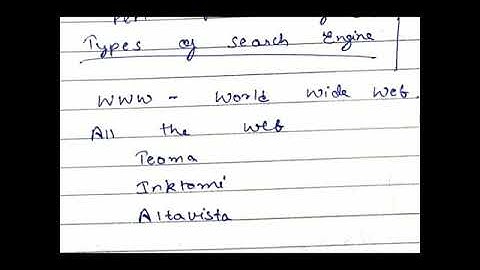 Types of Search Engine
WWW - World Wide Web.
All the Web
Teoma
Inktomi
Altavista